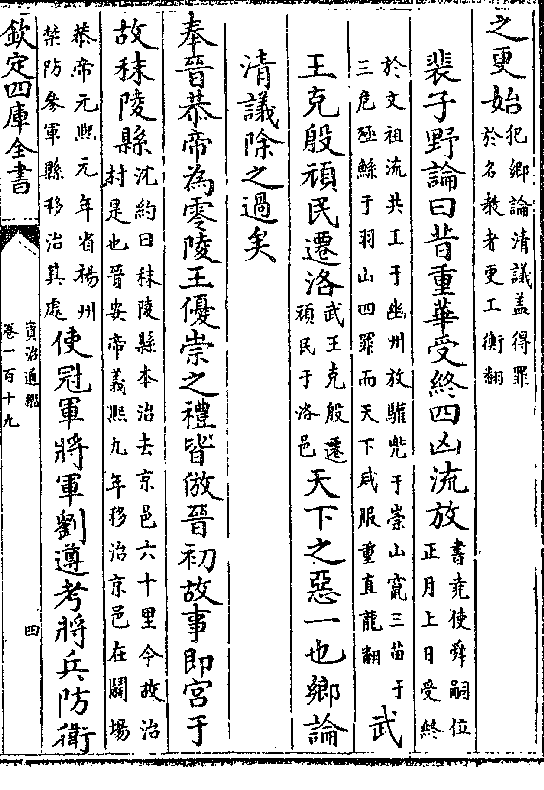 之更始犯鄉論清議盖得罪
於名教者更工衡翻
裴子野論曰昔重華受終四凶流放書堯使舜嗣位
正月上日受終
於文祖流共工于幽州放驩兜于崇山竄三苗于
三危殛鯀于羽山四罪而天下咸服重直龍翻武
王克殷頑民遷洛武王克殷遷
頑民于洛邑天下之惡一也鄉論
清議除之過矣
奉晉恭帝為零陵王優崇之禮皆倣晉初故事即宮于
故秣陵縣沈約曰秣陵縣本治去京邑六十里今故治
村是也晉安帝義熙九年移治京邑在鬭場
恭帝元熙元年省揚州
禁防參軍縣移治其處使冠軍將軍劉遵考將兵防衛
欽定四庫全書
資治通鑑
卷一百十九
四